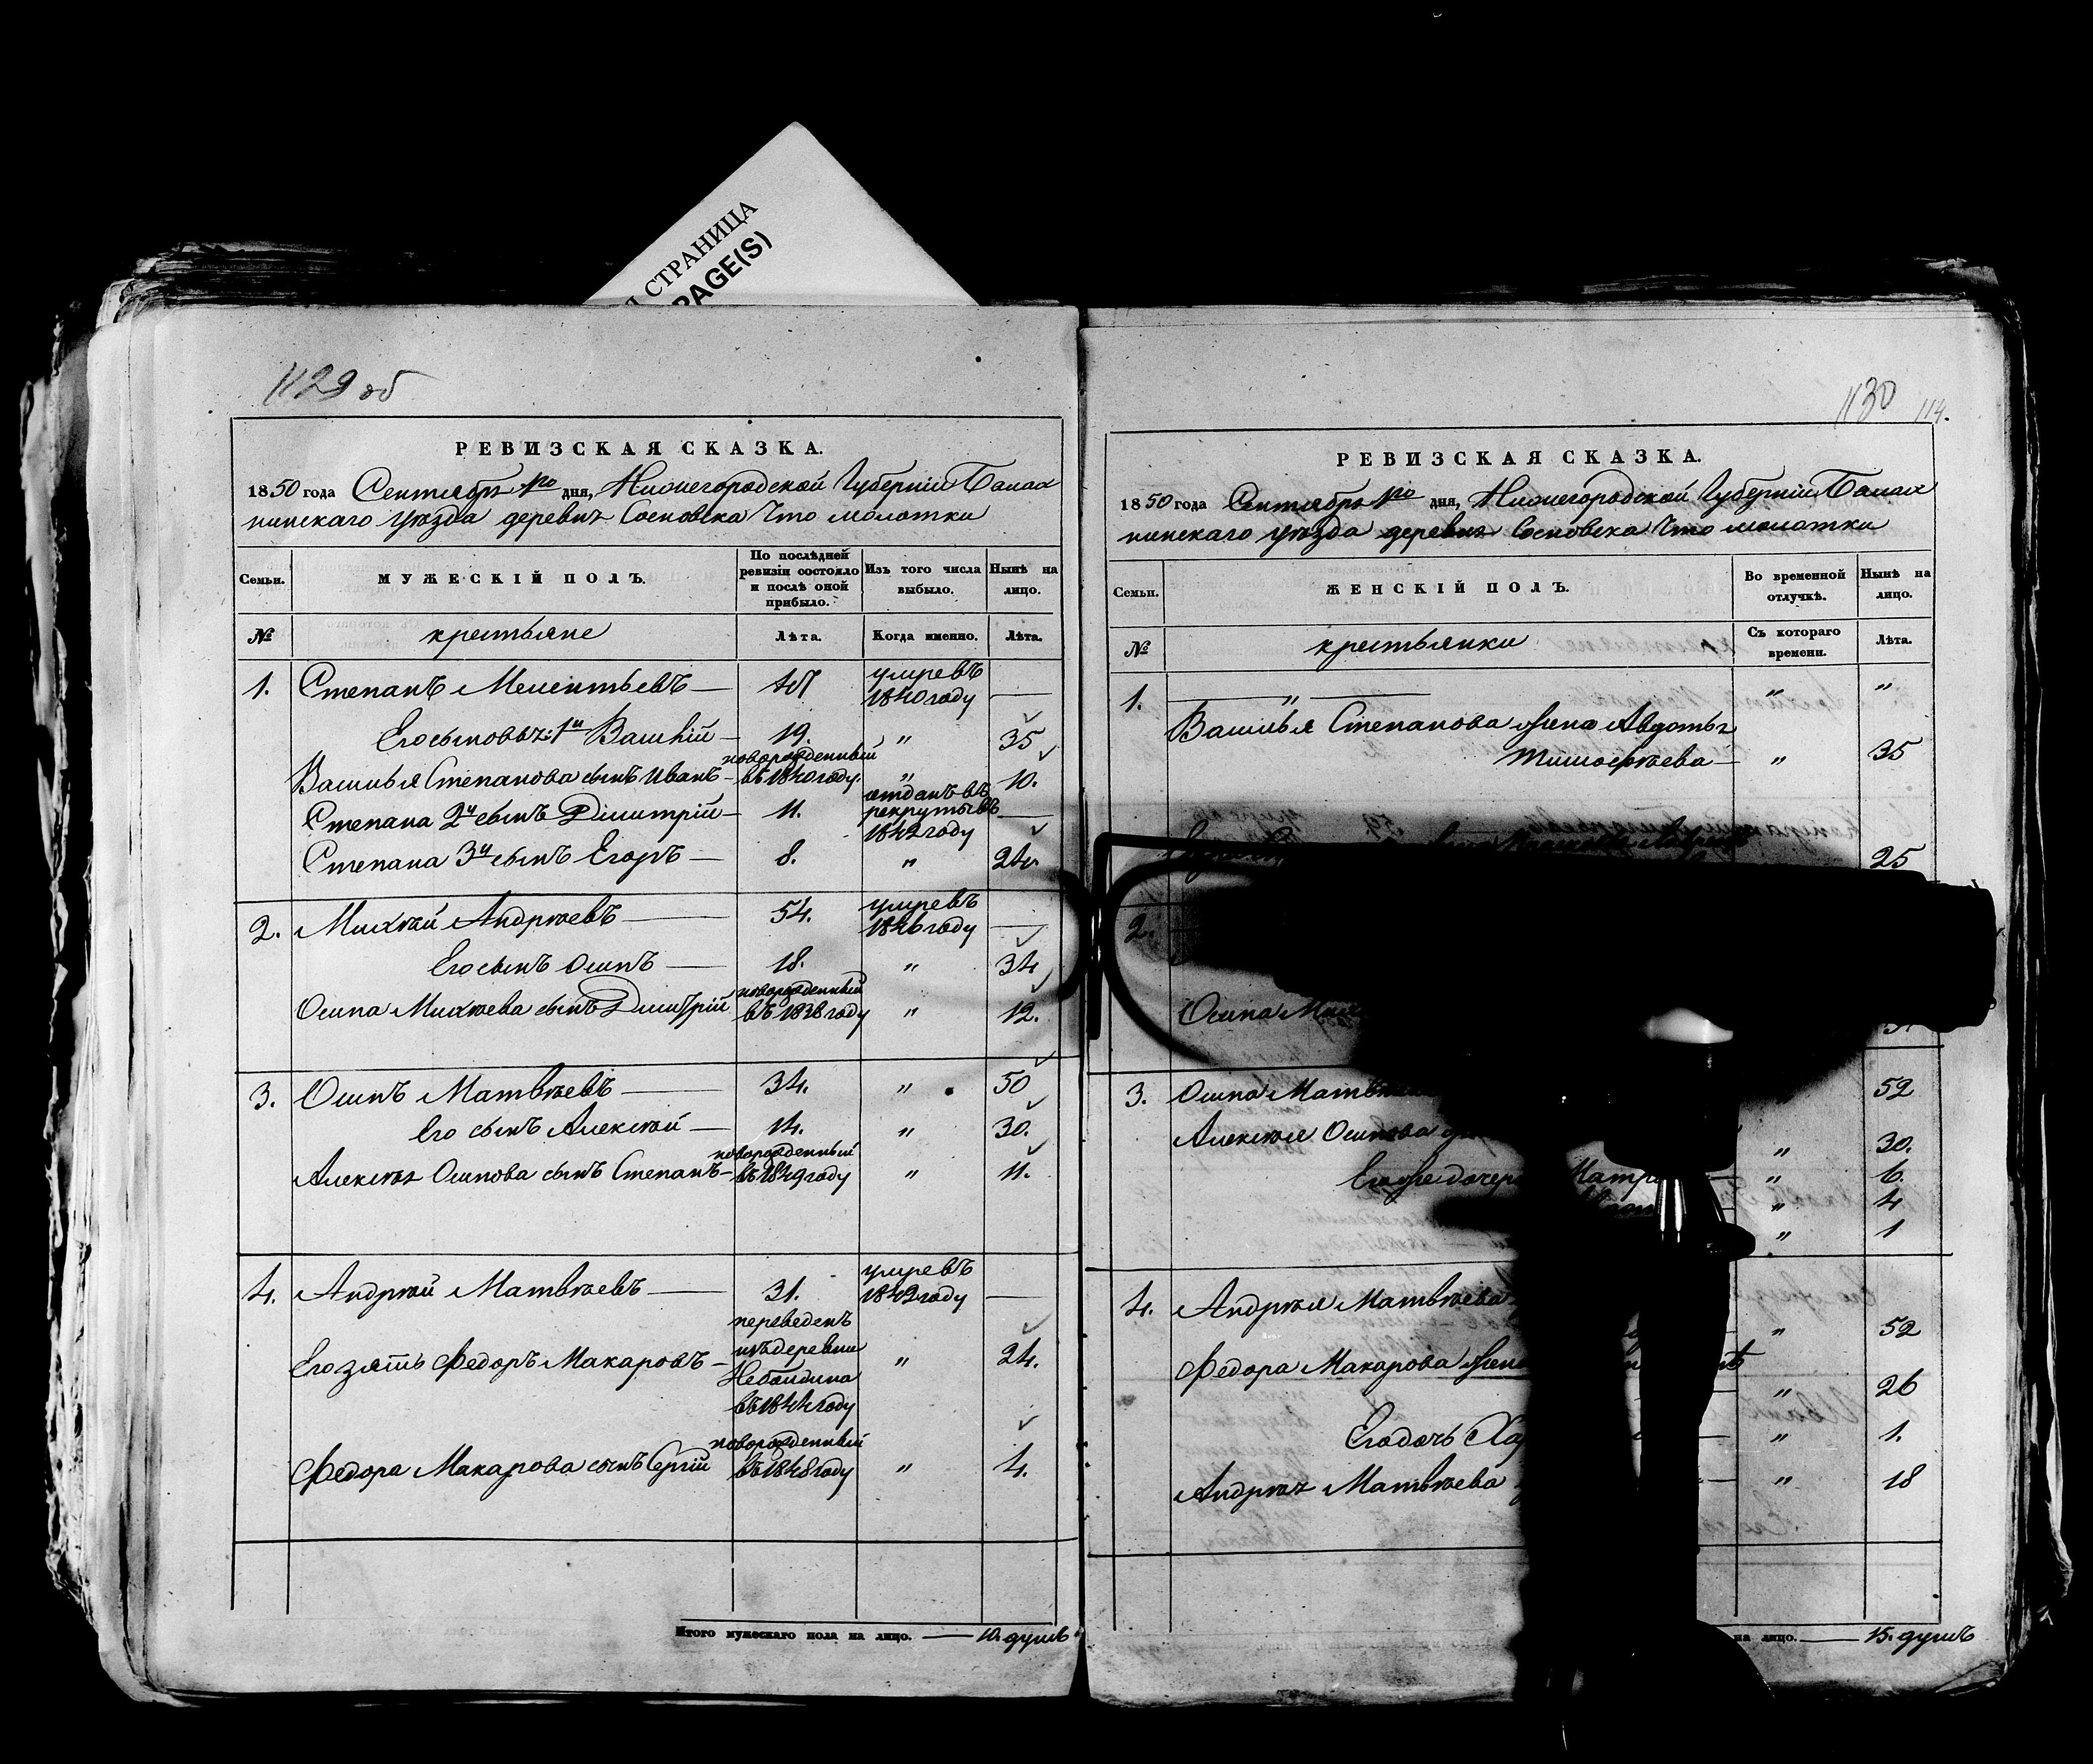 Я СТРАНИЦА
PAGE(S)
1129 об
РЕВИЗСКАЯ СКАЗКА.
1850 года Сентября 1го дня, Нижегородской Губернiи Балах
нинскаго уѣзда деревни Сосновска Что молотки
Семьи.
МУЖЕСКІЙ ПОЛЪ.
По послѣдней ревизіи состояло и послѣ оной прибыло.
Изъ того числа выбыло.
Нынѣ на лицо.
№
крестьяне
Лѣта.
Когда именно.
Лѣта.
1. Степанъ Мелентьевъ — 47 умревъ 1840 году —
Его сыновья: 1й Василій — 19. " 35
Василья Степанова сынъ Иванъ — новорожденный въ 1840 году. " 10.
Степана 2й сынъ Димитрій — 11. отданъ въ рекруты въ 1842 году —
Степана 3й сынъ Егоръ — 8. " 24
2. Михѣй Андрѣевъ — 54. умревъ 1846 году —
Его сынъ Осипъ — 18. " 34
Осипа Михѣева сынъ Димитрій новорожденный въ 1838 году " 12.
3. Осипъ Матвѣевъ — 34. " 50
Его сынъ Алексѣй — 14. " 30.
Алексѣя Осипова сынъ Степанъ — новорожденный въ 1849 году " 11.
4. Андрѣй Матвѣевъ — 31. умревъ 1842 году —
Его зять Федоръ Макаровъ — переведенъ изъ деревни въ 1844 году " 24.
Федора Макарова сынъ Сергій новорожденный въ 1848 году " 4.
Итого мужескаго пола на лицо. — 10. душъ
1130 114.
РЕВИЗСКАЯ СКАЗКА.
1850 года Сентября 1го дня, Нижегородской Губернiи Балах
нинскаго уѣзда деревни Сосновска Что молотки
Семьи.
ЖЕНСКІЙ ПОЛЪ.
Во временной отлучкѣ.
Нынѣ на лицо.
№
крестьянки
Съ котораго времени.
Лѣта.
1. — " — " "
Василья Степанова жена Авдотья
Тимофѣева — " 35
25
2.
Осипа
3. Осипа 52
Алексѣя Осипова " 30.
Его же дочери " 6.
" 4
" 1
4. Андрѣя Матвѣева
" 52
Федора Макарова жена
" 26
Его дочь " 1.
Андрѣя Матвѣева " 18
на лицо. — 15. душъ